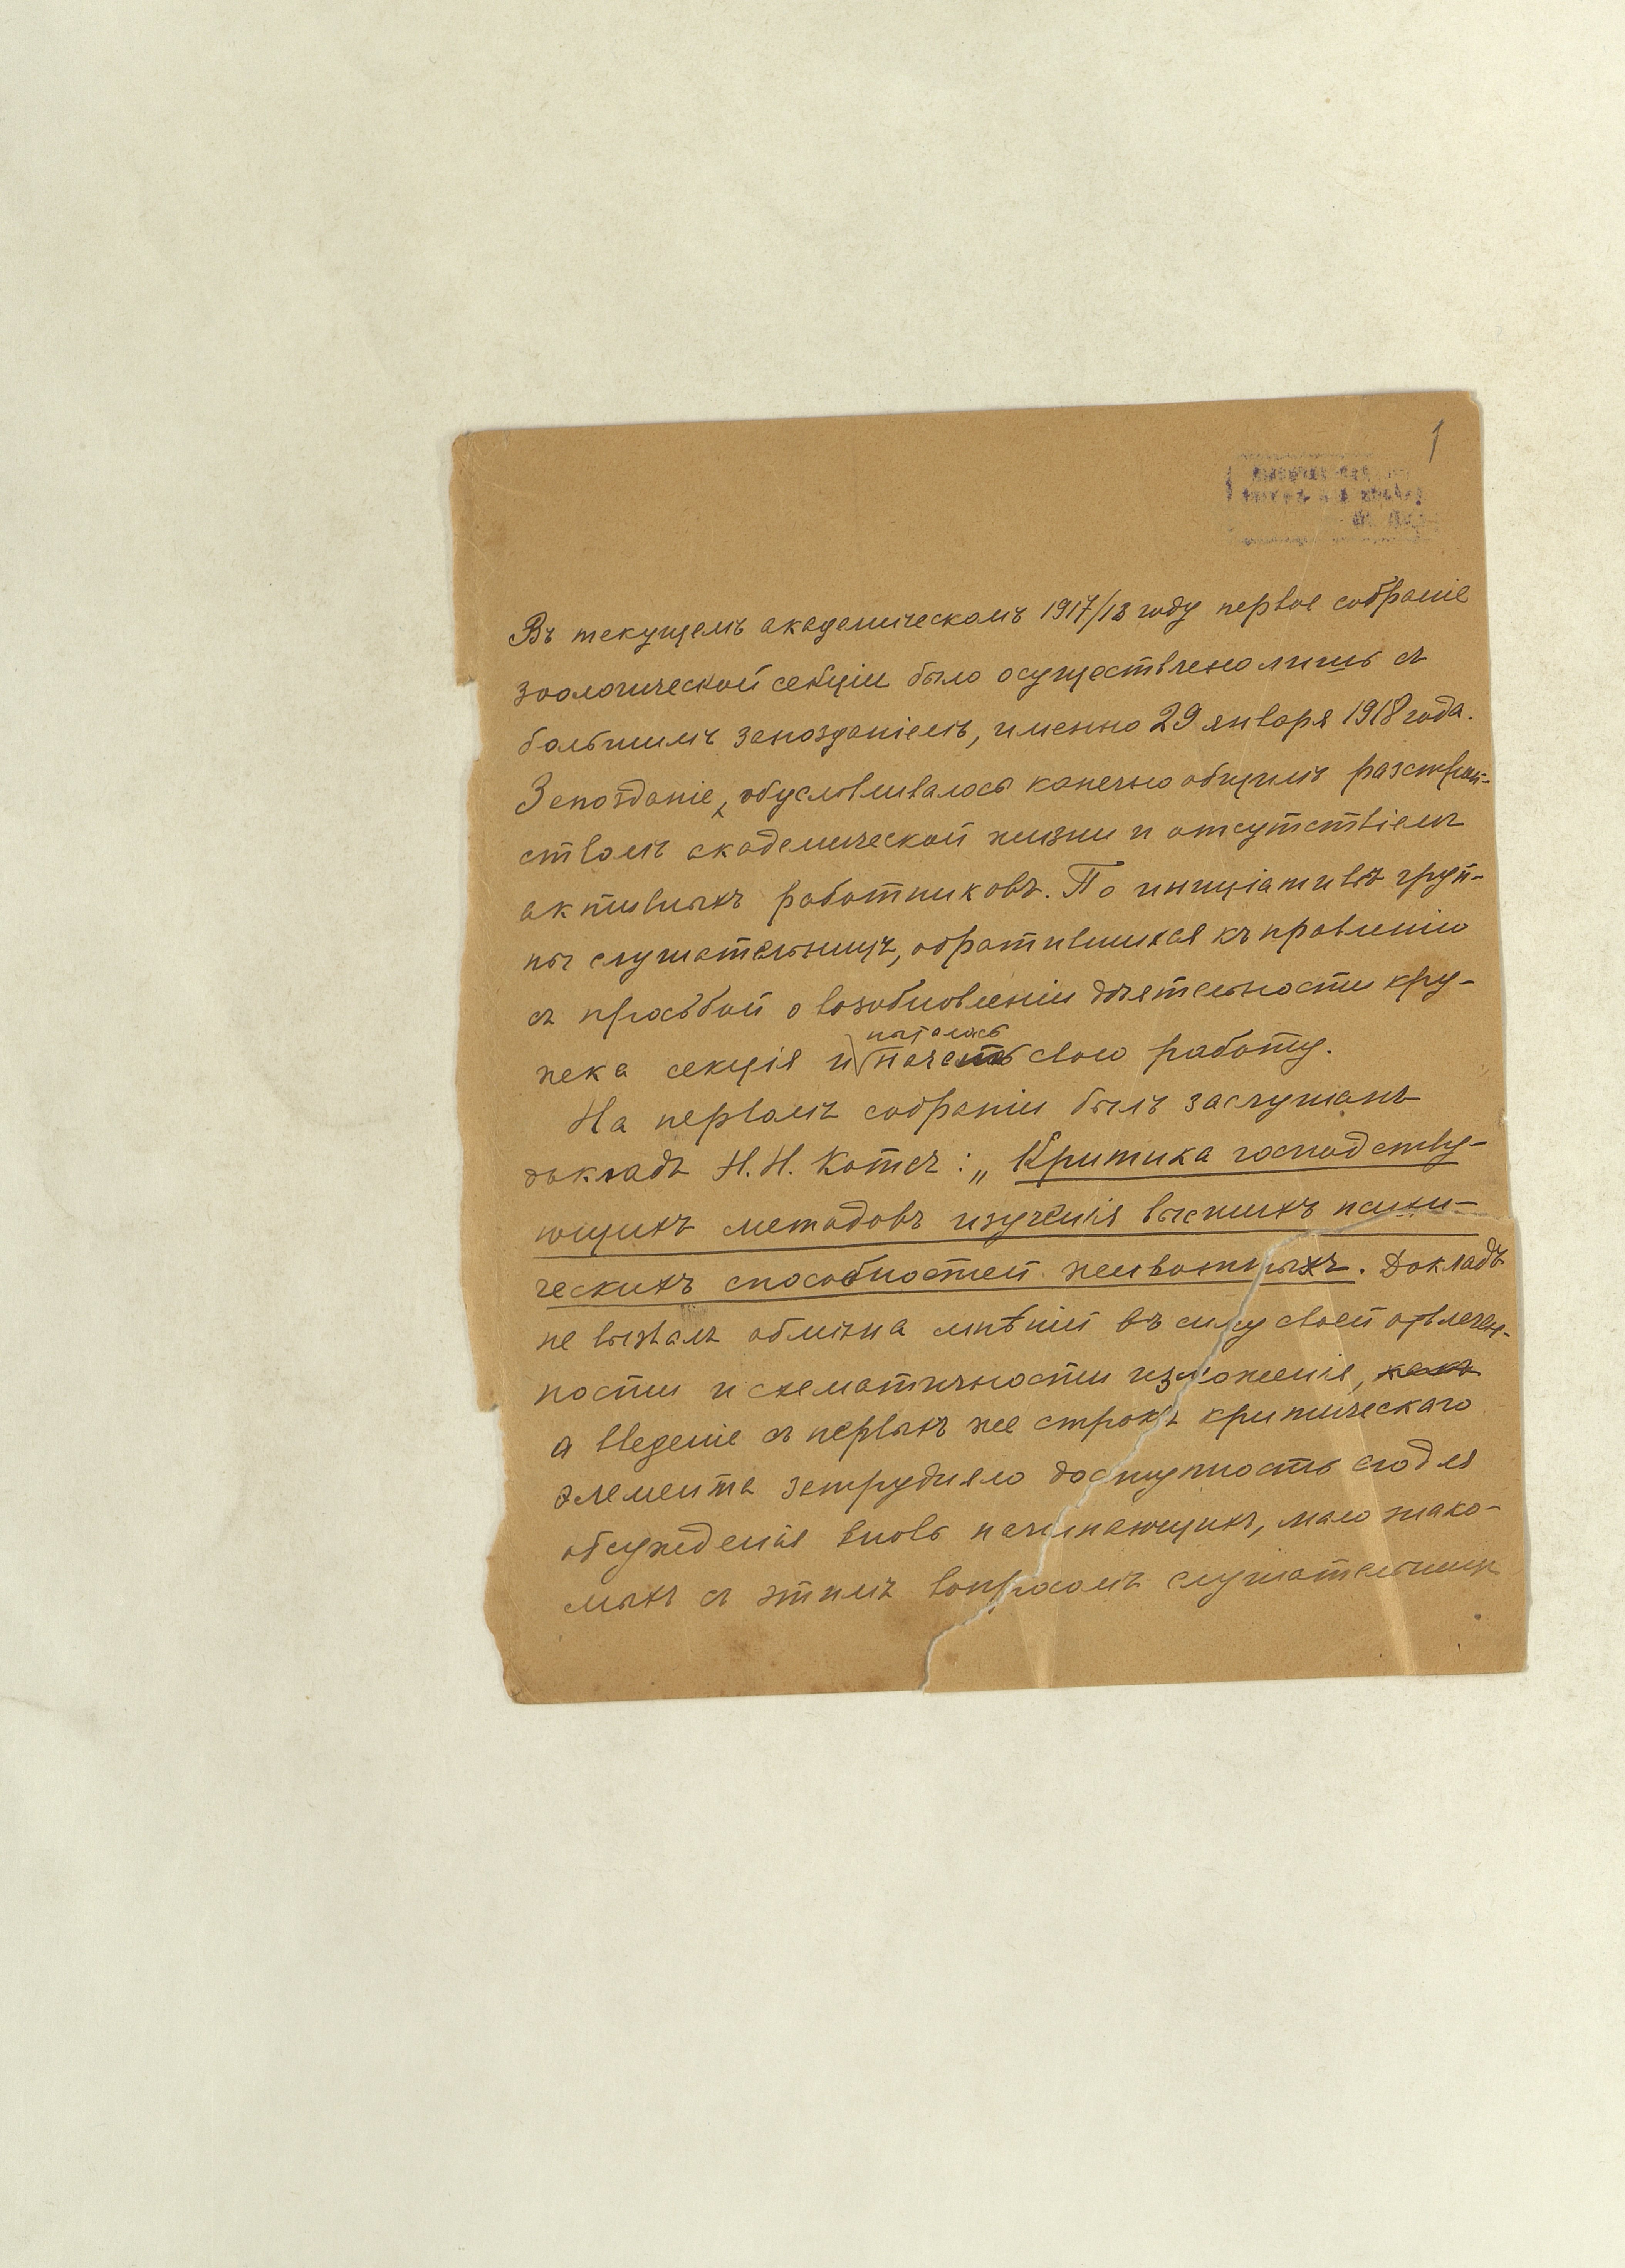 1
Въ текущемъ академическомъ 1917/18 году первое собраніе
зоологической секціи было осуществлено лишь съ
большимъ запозданіемъ, именно 29 января 1918 года.
Запозданіе, обусловливалось конечно общимъ разстрой-
ствомъ академической жизни и отсутствіемъ
активныхъ работниковъ. По инициативѣ груп-
пы слушательницъ, обратившихся къ правленію
съ просьбой о возобновленіи дѣятельности кру-
жка секція и начать свою работу.
На первомъ собраніи былъ заслушанъ
докладъ Н. Н. Котсъ: „Критика господству-
ющихъ методовъ изученія высшихъ психи-
ческихъ способностей животныхъ. Докладъ
не вызвалъ обмѣна мнѣній въ силу своей отвлечен-
ности и схематичности изложенія, какъ
а введеніе съ первыхъ же строкъ критическаго
элемента затрудняло доступность его для
обсужденія вновь начинающихъ, мало знако-
мыхъ съ этимъ вопросомъ слушательницъ